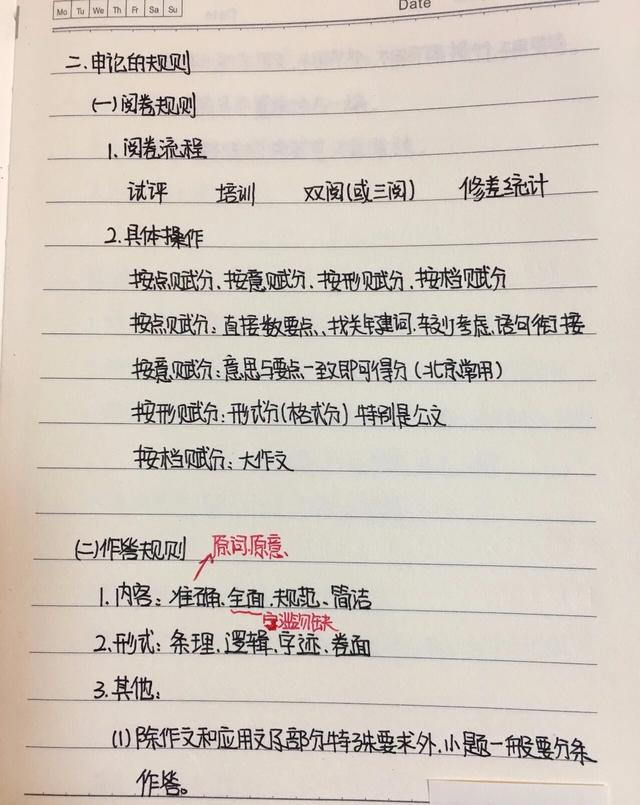 Mo Tu We Th Fr Sa Su
Date
二.申论的规则
(一)阅卷规则
1.阅卷流程
试评 培训 双阅(或三阅) 修差统计
2.具体操作
按点赋分、按意赋分、按形赋分、按档赋分
按点赋分:直接数要点、找关键词.较少考虑.语句衔接
按意赋分:意思与要点一致即可得分(北京常用)
按形赋分:形式分(格式分)特别是公文
按档赋分:大作文
(二)作答规则 原词.原意、
1.内容:准确.全面.规范、简洁
宁滥勿缺
2.形式:条理.逻辑.字迹、卷面
3.其他:
(1)除作文和应用文及部分特殊要求外.小题一般要分条
作答。